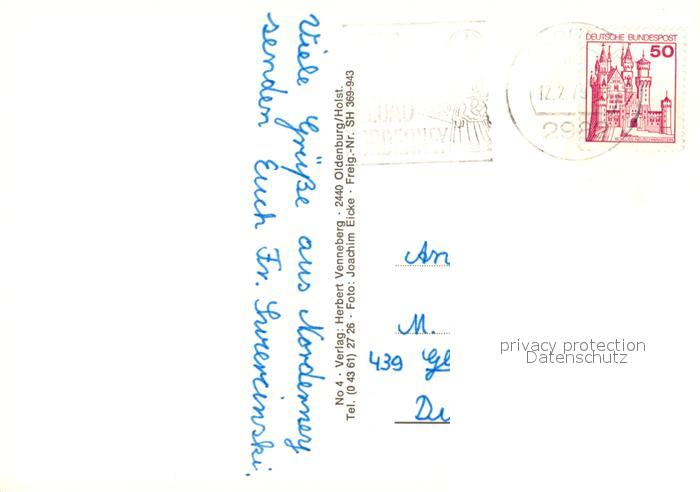 Viele Grüße aus Norderney
senden Euch Fr.
No 4 · Verlag: Herbert Venneberg · 2440 Oldenburg/Holst.
Tel. (0 43 61) 27 26 · Foto: Joachim Eicke · Freig.-Nr. SH 369-943
DEUTSCHE BUNDESPOST
50
12.2.
298
An
M.
439
privacy protection
Datenschutz